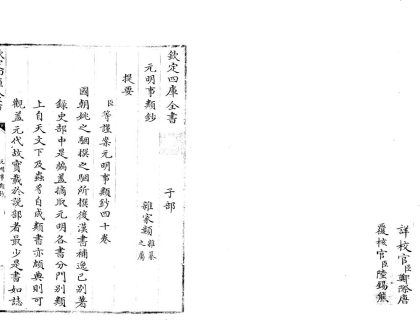 詳校官臣鄭際唐
覆校官臣陸錫熊
欽定四庫全書　子部
元明事類鈔　雜家類雜纂之屬
提要
臣等謹案元明事類鈔四十卷
國朝姚之駰撰之駰所撰後漢書補逸已别著
録史部中是編蓋摘取元明各書分門别類
上自天文下及蟲豸自成類書亦頗典則可
觀蓋元代故實載於説部者最少是書如誌